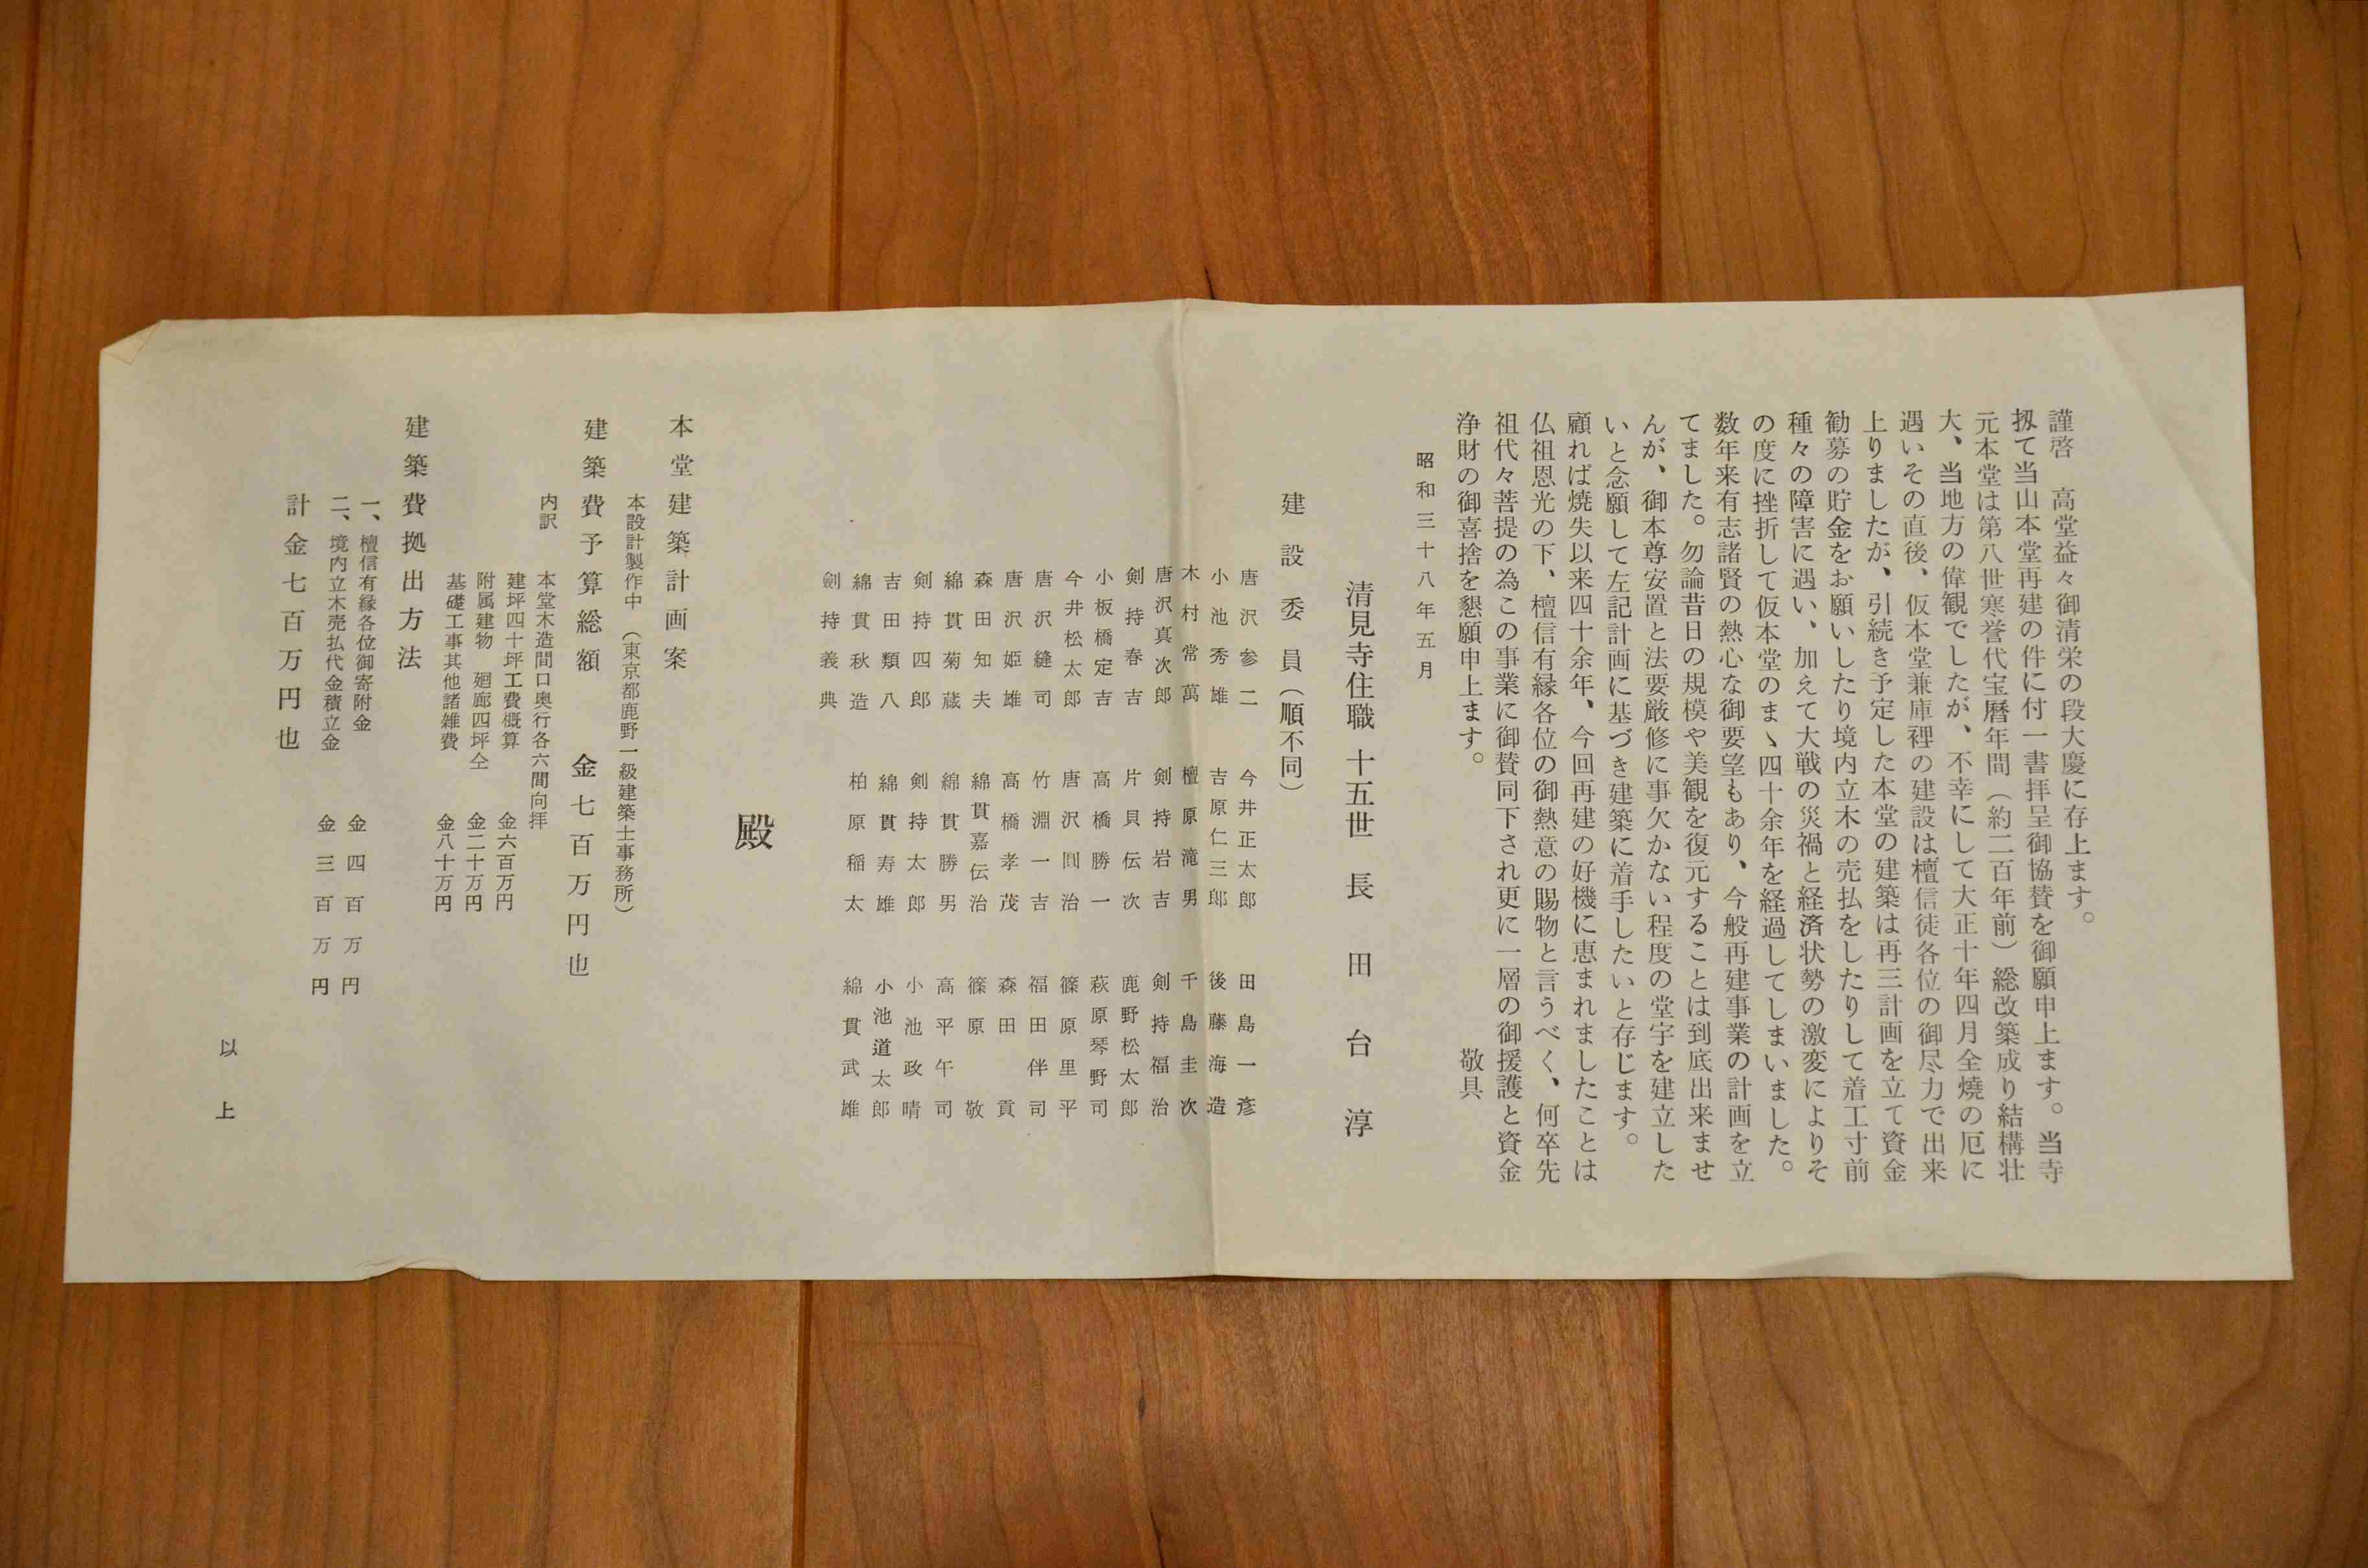 謹啓　高堂益々御清栄の段大慶に存上ます。
扨て当山本堂再建の件に付一書拝呈御協賛を御願申上ます。当寺
元本堂は第八世寒誉代宝暦年間（約二百年前）総改築成り結構壮
大、当地方の偉観でしたが、不幸にして大正十年四月全焼の厄に
遇いその直後、仮本堂兼庫裡の建設は檀信徒各位の御尽力で出来
上りましたが、引続き予定した本堂の建築は再三計画を立て資金
勧募の貯金をお願いしたり境内立木の売払をしたりして着工寸前
種々の障害に遇い、加えて大戦の災禍と経済状勢の激変によりそ
の度に挫折して仮本堂のまゝ四十余年を経過してしまいました。
数年来有志諸賢の熱心な御要望もあり、今般再建事業の計画を立
てました。勿論昔日の規模や美観を復元することは到底出来ませ
んが、御本尊安置と法要厳修に事欠かない程度の堂宇を建立した
いと念願して左記計画に基づき建築に着手したいと存じます。
顧れば焼失以来四十余年、今回再建の好機に恵まれましたことは
仏祖恩光の下、檀信有縁各位の御熱意の賜物と言うべく、何卒先
祖代々菩提の為この事業に御賛同下され更に一層の御援護と資金
浄財の御喜捨を懇願申上ます。　敬具
昭和三十八年五月
清見寺住職　十五世　長田台淳
建設委員（順不同）
唐沢参二
小池秀雄
木村常萬
唐沢真次郎
剣持春吉
小板橋定吉
今井松太郎
唐沢縫司
唐沢姫雄
森田知夫
綿貫菊蔵
剣持四郎
吉田類八
綿貫秋造
劍持義典
今井正太郎
吉原仁三郎
檀原滝男
剣持岩吉
片貝伝次
高橋勝一
唐沢圓治
竹淵一吉
高橋孝茂
綿貫嘉伝治
綿貫勝男
剣持太郎
綿貫寿雄
柏原稲太
田島一彦
後藤海造
千島圭次
剣持福治
鹿野松太郎
萩原琴野司
篠原里平
福田伴司
森田貢
篠原敬
高平午司
小池政晴
小池道太郎
綿貫武雄
殿
本堂建築計画案
本設計製作中　（東京都鹿野一級建築士事務所）
建築費予算総額　金七百万円也
内訳　本堂木造間口奥行各六間向拝
建坪四十坪工費概算　金六百万円
附属建物　廻廊四坪仝　金二十万円
基礎工事其他諸雑費　金八十万円
建築費拠出方法
一、檀信有縁各位御寄附金　金四百万円
二、境内立木売払代金積立金　金三百万円
計金七百万円也
以上